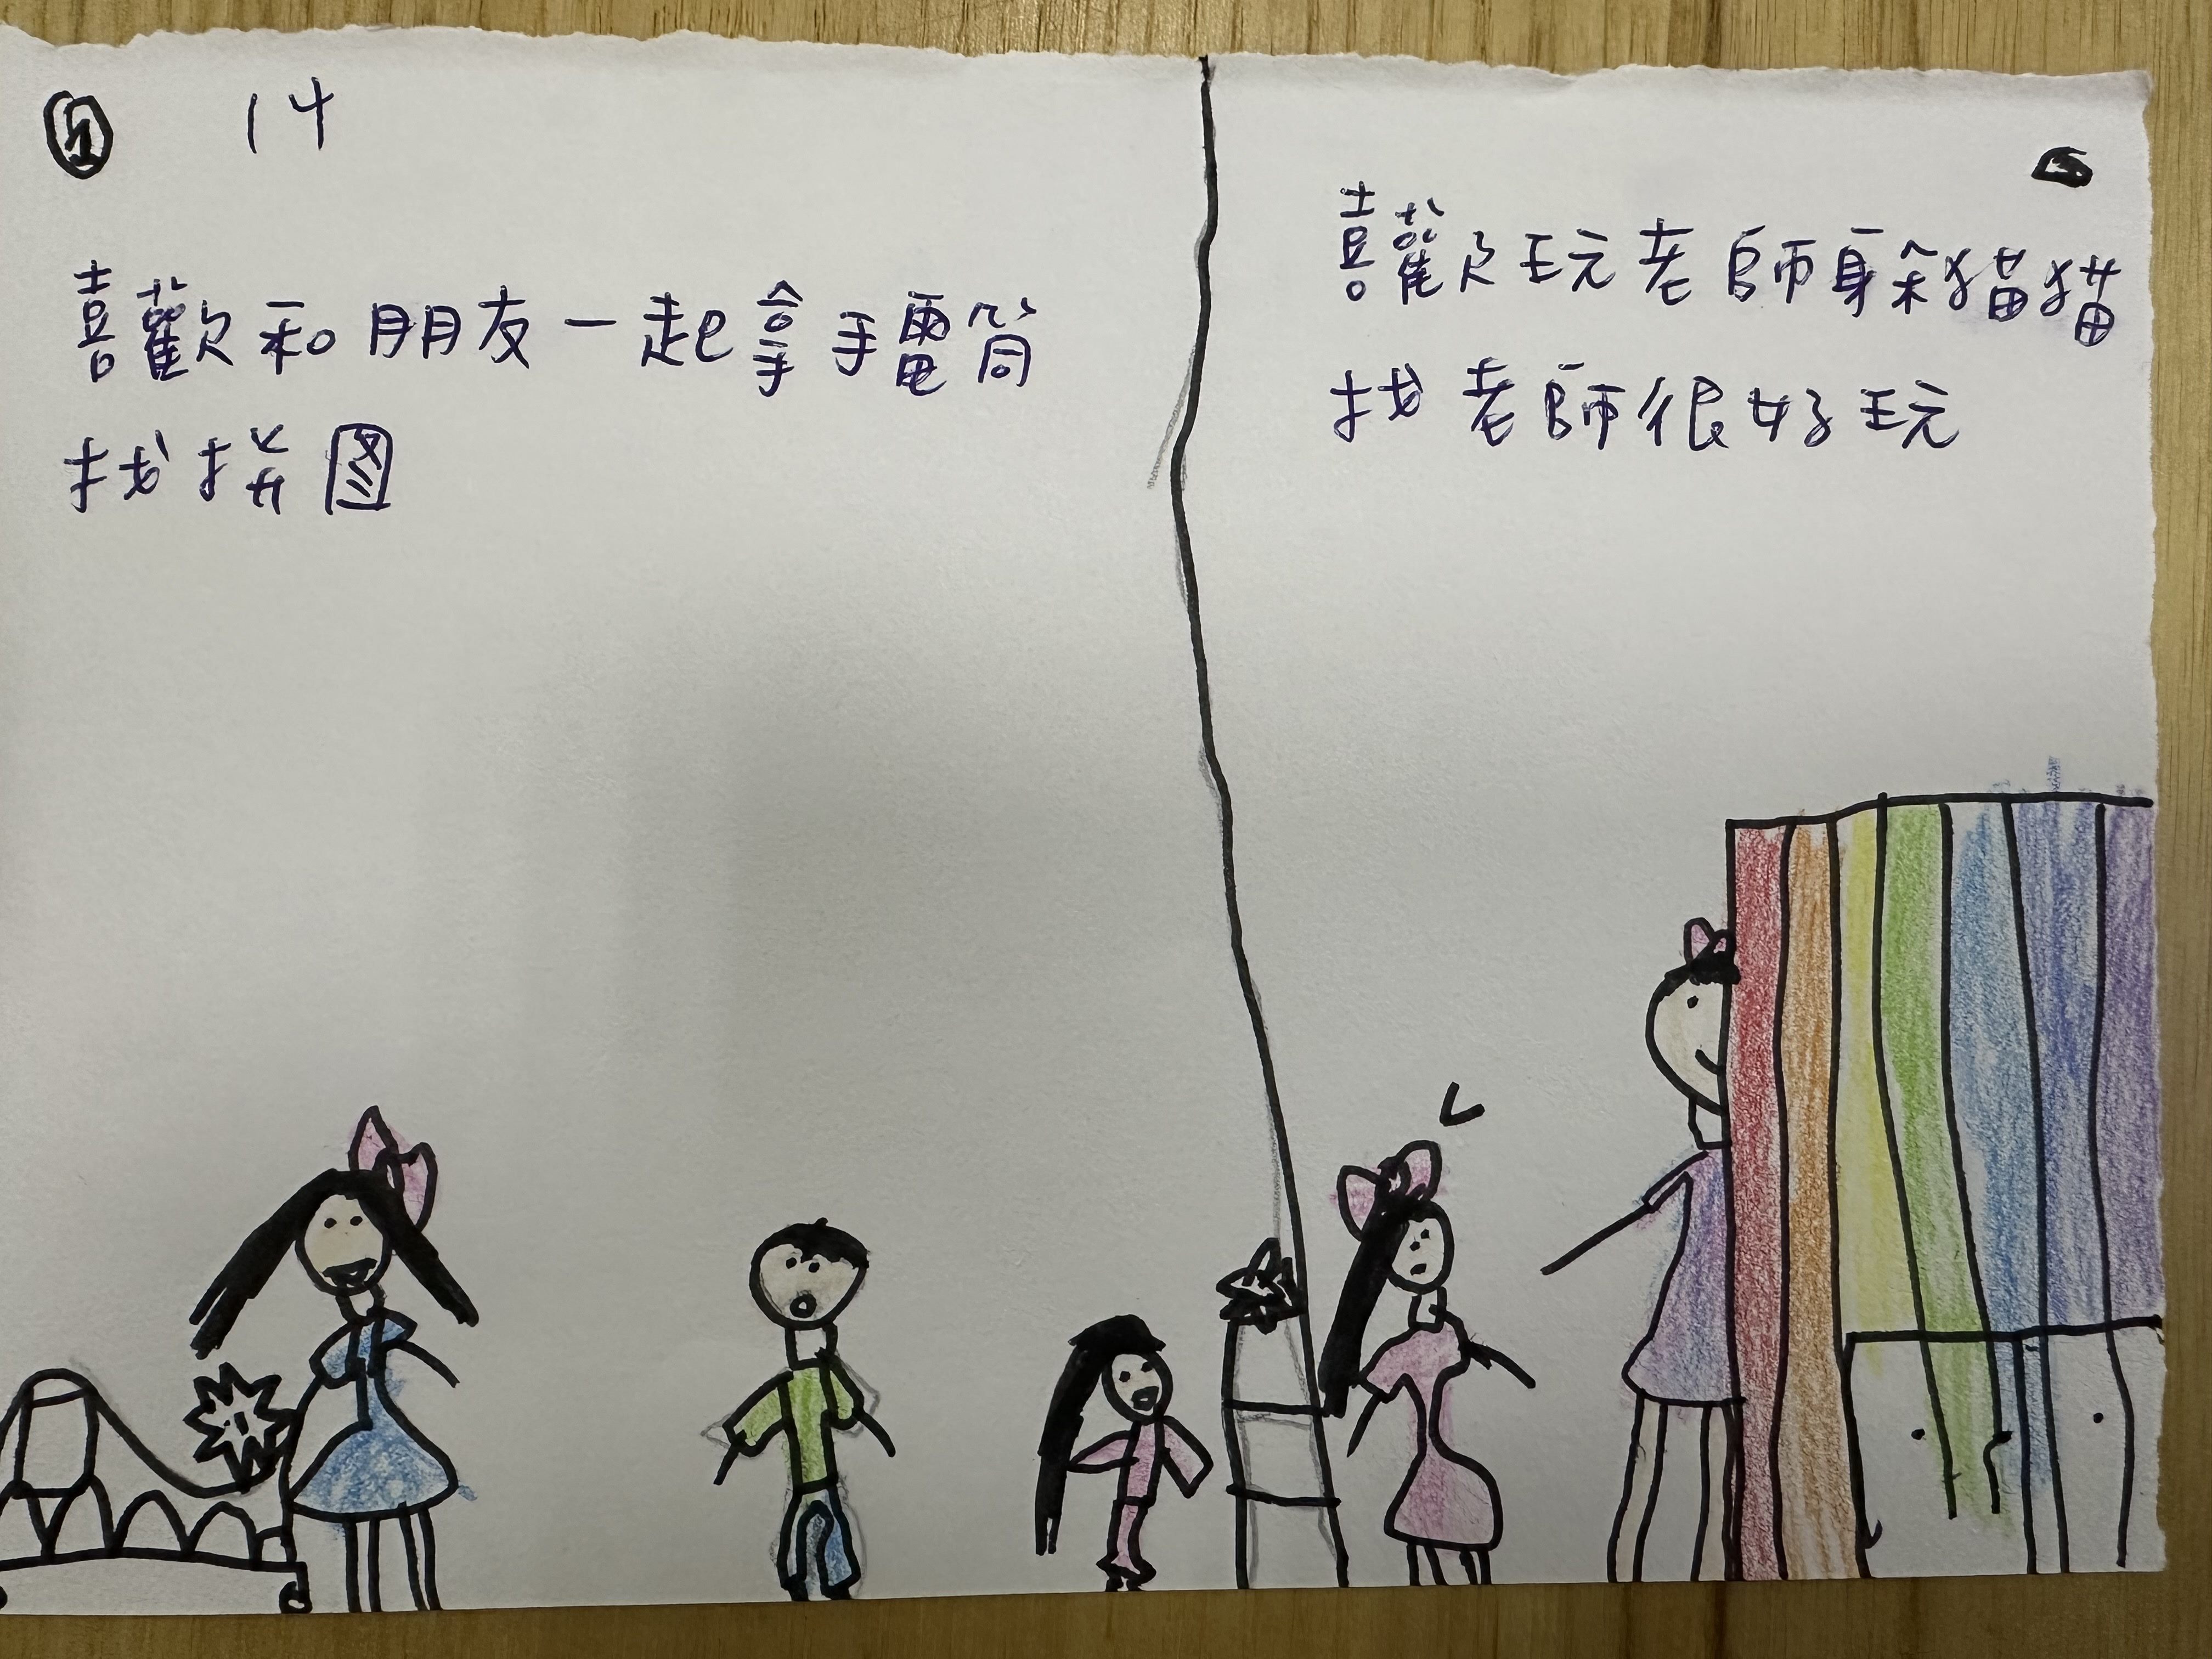 14
喜歡和朋友一起拿手電筒
找拼圖
喜歡玩老師躲貓貓
找老師很好玩